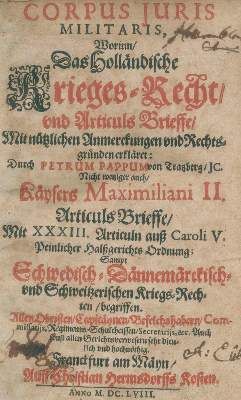 CORPUS JURIS
MILITARIS,
Worinn/
Das Holländische
Krieges-Recht/
und Articuls Brieffe/
Mit nützlichen Anmerckungen und Rechts-
gründen erkläret:
Durch PETRUM PAPPUM von Tratzberg/ JC.
Nicht weniger auch/
Käysers Maximiliani II.
Articuls Brieffe/
Mit XXXIII. Articuln auß Caroli V.
Peinlicher Halßgerichts Ordnung:
Sampt
Schwedisch-Dännemärckisch-
und Schweitzerischen Kriegs-Rech-
ten/ begriffen.
Allen Obristen/ Capitäynen/ Befelchshabern/ Com-
missarien, Regiments-Schultheissen/ Secretariis, &c. Auch
sonst allen Gerichtsverwesern sehr dien-
lich und hochnöthig.
Franckfurt am Mäyn/
Auff Christian Hermsdorffs Kosten.
Anno M. DC. LVIII.